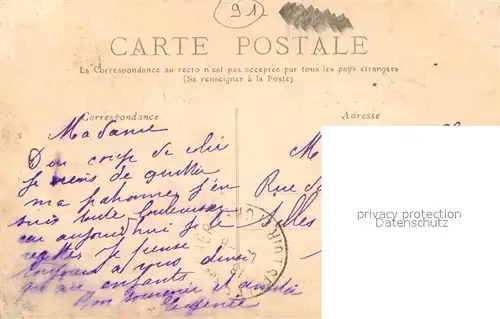 91
CARTE POSTALE
La Correspondance au recto n'est pas acceptée par tous les pays étrangers
(Se renseigner à la Poste)
Correspondance
Adresse
Madame
D'un coup de
Je viens de quitter
ma j'en
suis toute bouleversée
car aujourd'hui je le
regrette Je pense
toujours à vous ainsi
qu'aux enfants
Bon souvenir et amitié
M
Rue du
privacy protection
Datenschutz